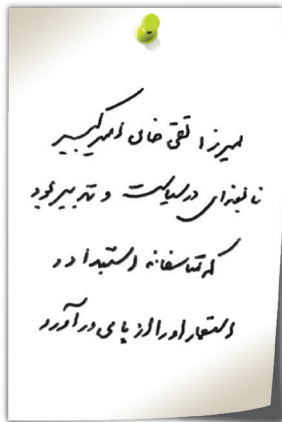 میرزا تقی خان امیرکبیر
نابغه‌ای در سیاست و تدبیر بود
که متاسفانه استبداد و
استعمار او را از پای درآورد